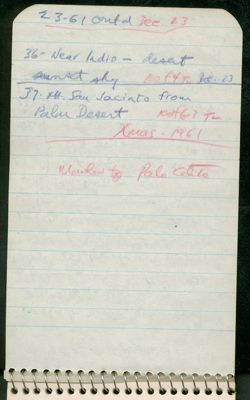 23-61 Contd Dec 23
36- Near Indio - desert
sunset sky Dec. 23
37. Mt. San Jacinto from
Palm Desert
Xmas - 1961
Palo Alto